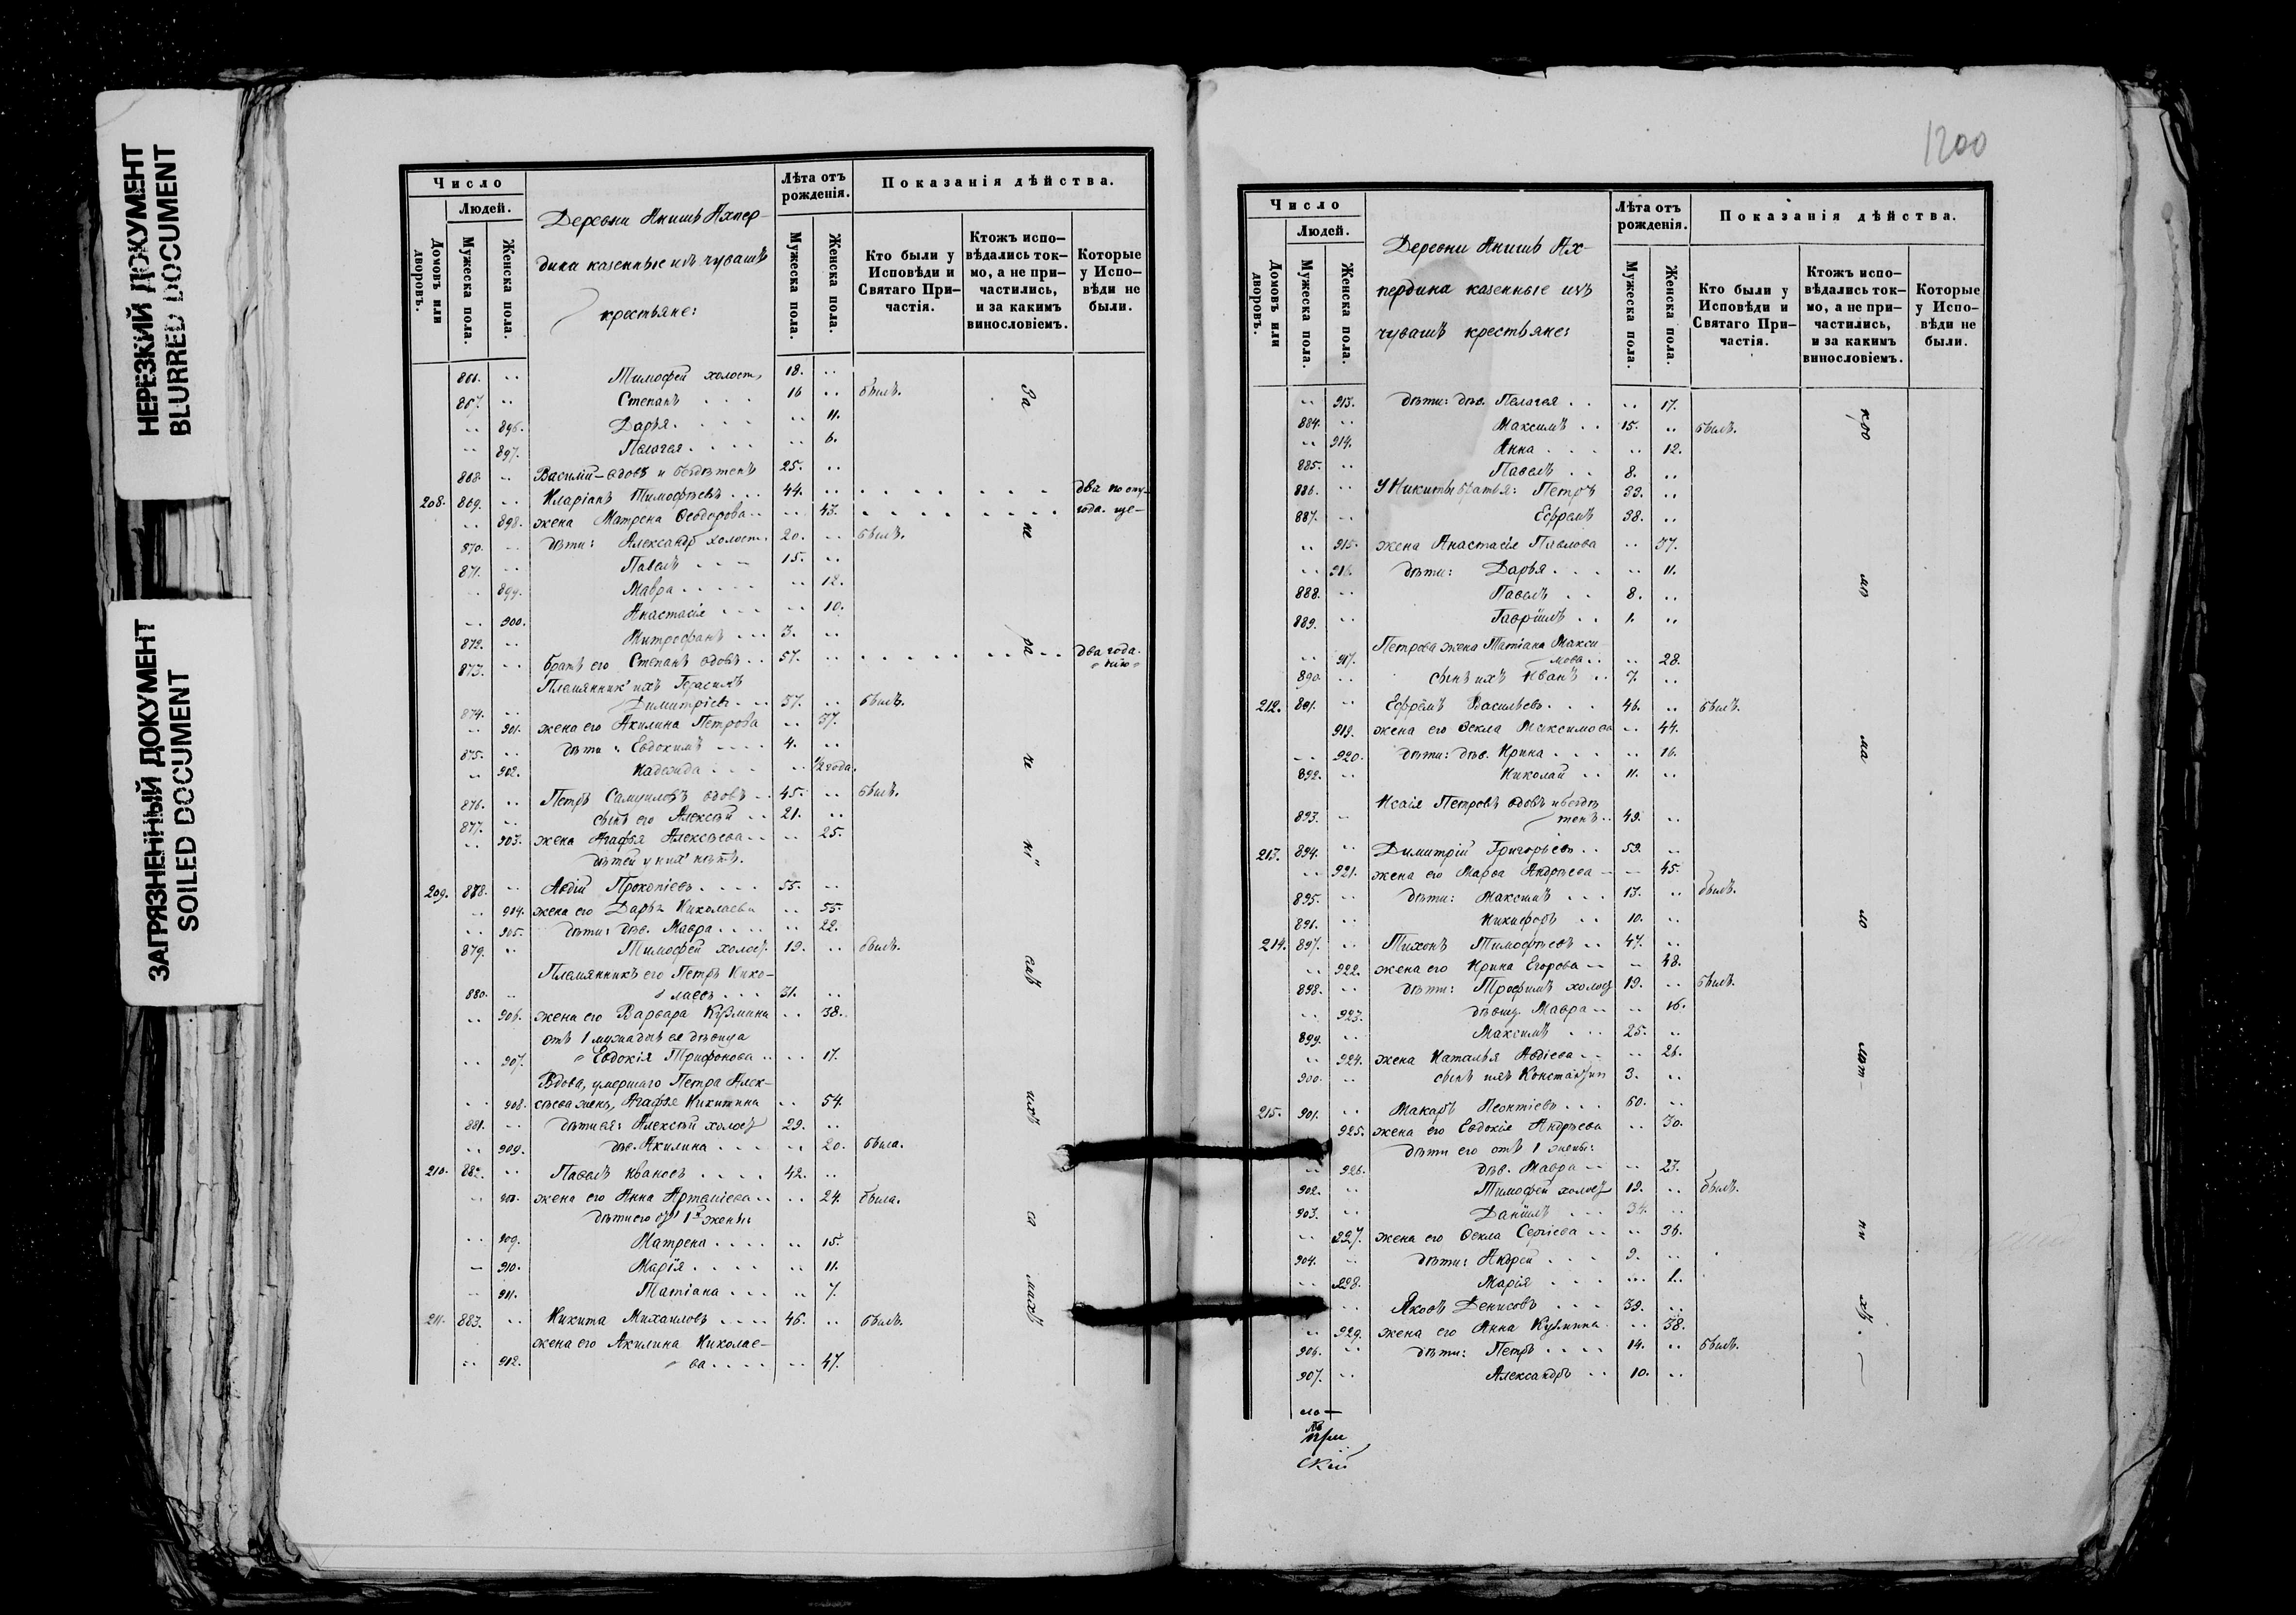 НЕРЕЗКИЙ ДОКУМЕНТ
BLURRED DOCUMENT
ЗАГРЯЗНЕННЫЙ ДОКУМЕНТ
SOILED DOCUMENT
Число
Людей.
Домовъ или дворовъ.
Мужеска пола.
Женска пола.
Деревни Анишъ Ахпер-
дина казенные изъ чувашъ
крестьяне:
Лѣта отъ рожденія.
Мужеска пола.
Женска пола.
Показанія дѣйства.
Кто были у Исповѣди и Святаго При-частія.
Ктожъ испо-вѣдались ток-мо, а не при-частились, и за какимъ винословіемъ.
Которые у Испо-вѣди не были.
866. .. Тимофей холост 18. ..
867. .. Степанъ . . . 16 .. былъ.
.. 896. Дарья . . . . .. 11.
.. 897. Пелагея . . . . .. 6.
868. .. Василий - вдовъ и бездѣтенъ 25. ..
208. 869. .. Иларіонъ Тимофѣевъ . . . 44. ..
.. 898. жена Матрена Ѳеодорова .. .. 43.
870. .. дѣти: Александръ холост. 20. .. былъ.
871. .. Павелъ . . . 15. ..
.. 899. Мавра . . . . . .. 12.
.. 900. Анастасія . . . .. 10.
872. .. Митрофанъ . . . 3. ..
873. .. братъ его Степанъ вдовъ . . 57. .. два года.
Племянникъ ихъ Герасимъ
874. .. Димитріевъ . . . 37. .. былъ.
.. 901. жена его Акилина Петрова .. 37.
875. .. дѣти: Евдокимъ . . . . 4. ..
.. 902. Надежда . . . .. 1/2 года.
876. .. Петръ Самуиловъ вдовъ . . 45. .. былъ.
877. .. сынъ его Алексѣй . . 21. ..
.. 903. жена Агафья Алексѣева . . .. 25.
дѣтей у нихъ нѣтъ.
209. 878. .. Авдій Прокопіевъ . . . . 55. ..
.. 904. жена его Дарья Николаева .. 55.
.. 905. дѣти: дѣв. Мавра . . . . .. 22.
879. .. Тимофей холост 19. .. былъ.
Племянникъ его Петръ Нико-
880. .. лаевъ . . . 31. ..
.. 906. жена его Варвара Кузмина .. 38.
отъ 1 мужа дочь ея дѣвица
.. 907. Евдокія Трифонова .. .. 17.
Вдова, умершаго Петра Алек-
.. 908. сѣева жена, Агафья Никитина .. 54.
881. .. дѣти ея: Алексѣй холост 29. ..
.. 909. дѣв. Акилина . . . .. 20. была.
210. 882. .. Павелъ Ивановъ . . . . 42. ..
.. 908. жена его Анна Артеміева .. .. 24. была.
дѣти его отъ 1й жены:
.. 909. Матрена . . . . .. 15.
.. 910. Марія . . . . .. 11.
.. 911. Татіана . . . .. 7.
211. 883. .. Никита Михаиловъ . . . . 46. .. былъ.
жена его Акилина Николае-
.. 912. ва . . . . .. 47.
1200
Число
Людей.
Домовъ или дворовъ.
Мужеска пола.
Женска пола.
Деревни Анишъ Ах-
пердина казенные изъ
чувашъ крестьяне:
Лѣта отъ рожденія.
Мужеска пола.
Женска пола.
Показанія дѣйства.
Кто были у Исповѣди и Святаго При-частія.
Ктожъ испо-вѣдались ток-мо, а не при-частились, и за какимъ винословіемъ.
Которые у Испо-вѣди не были.
.. 913. дѣти: дѣв. Пелагея . . .. 17.
884. .. Максимъ . . 15. .. былъ.
.. 914. Анна . . . . .. 12.
885. .. Павелъ . . 8. ..
886. .. У Никиты братья: Петръ 33. ..
887. .. Ефремъ 38. ..
.. 915. жена Анастасія Павлова .. 37.
.. 916. дѣти: Дарья . . . .. 11.
888. .. Павелъ . . 8. ..
889. .. Гавріилъ . . 1. ..
Петрова жена Татіана Макси
.. 917. мова . . .. 28.
890. .. сынъ ихъ Иванъ . . 7. ..
212. 891. .. Ефремъ Васильевъ . . . 46. .. былъ.
919. жена его Ѳекла Максимова .. 44.
.. 920. дѣти: дѣв. Ирина . . . .. 16.
892. .. Николай . . 11. ..
Исаія Петровъ вдовъ и бездѣ
893. .. тенъ . . 49. ..
213. 894. .. Димитрій Григорьевъ . . 59. ..
.. 921. жена его Марѳа Андрѣева .. 45.
895. .. дѣти: Максимъ . . . 13. .. былъ.
896. .. Никифоръ . . 10. ..
214. 897. .. Тихонъ Тимофѣевъ . . 47. ..
.. 922. жена его Ирина Егорова .. .. 48.
898. .. дѣти: Трофимъ холост 19. .. былъ.
.. 923. дѣвиц. Мавра .. .. 16.
899. .. Максимъ . . . 25. ..
.. 924. жена Наталья Авдіева .. .. 26.
900. .. сынъ ихъ Константин 3. ..
215. 901. .. Макаръ Леонтіевъ . . . 60. ..
925. жена его Евдокія Андрѣева .. 30.
дѣти его отъ 1 жены:
.. 926. дѣв. Мавра .. .. 23.
902. .. Тимофей холост 19. .. былъ.
903. .. Даніилъ . . . 34. ..
.. 927. жена его Ѳекла Сергіева .. .. 36.
904. .. дѣти: Андрей . . . 9. ..
.. 928. Марія . . . .. 1.
.. Яковъ Денисовъ . . . 39. ..
.. 929. жена его Анна Кузмина .. 38.
906. .. дѣти: Петръ . . . . 14. .. былъ.
907. .. Александръ . . 10. ..